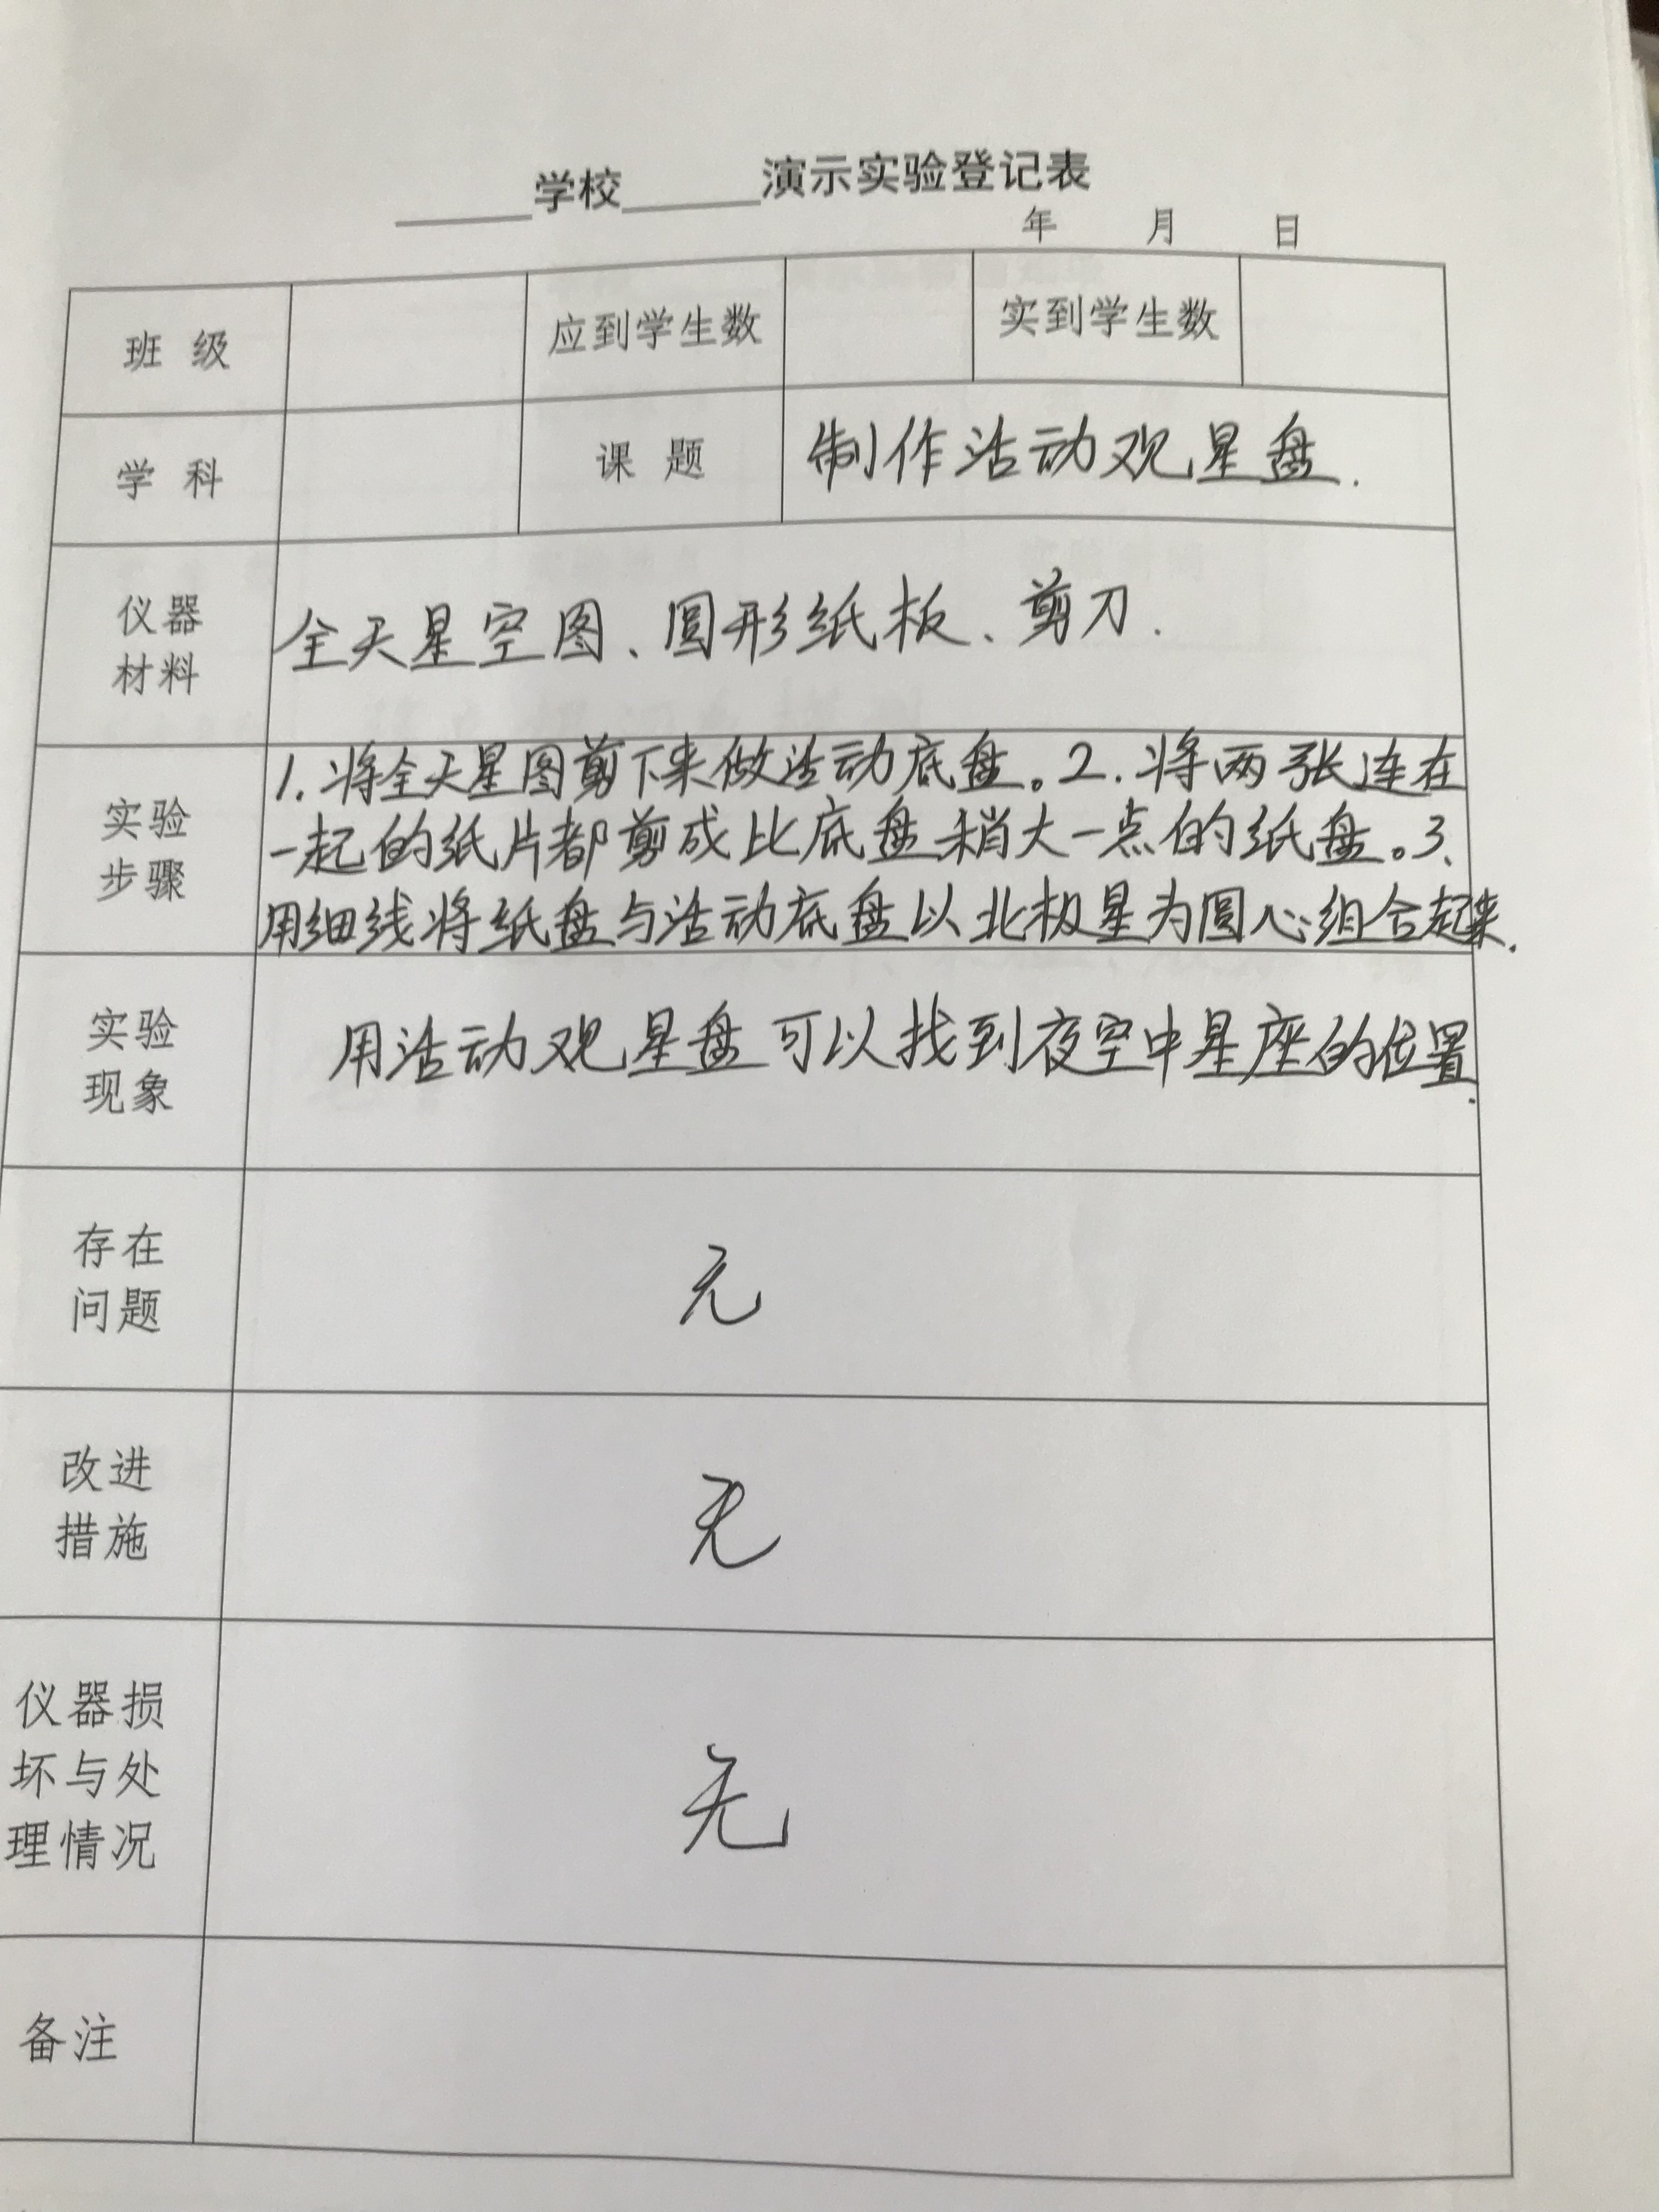 ______学校______演示实验登记表
年 月 日
班 级 应到学生数 实到学生数
学 科 课 题 制作活动观星盘.
仪器
材料
全天星空图、圆形纸板、剪刀.
实验
步骤
1.将全天星图剪下来做活动底盘。2.将两张连在
一起的纸片都剪成比底盘稍大一点的纸盘。3、
用细线将纸盘与活动底盘以北极星为圆心组合起来.
实验
现象
用活动观星盘可以找到夜空中星座的位置.
存在
问题
无
改进
措施
无
仪器损
坏与处
理情况
无
备注